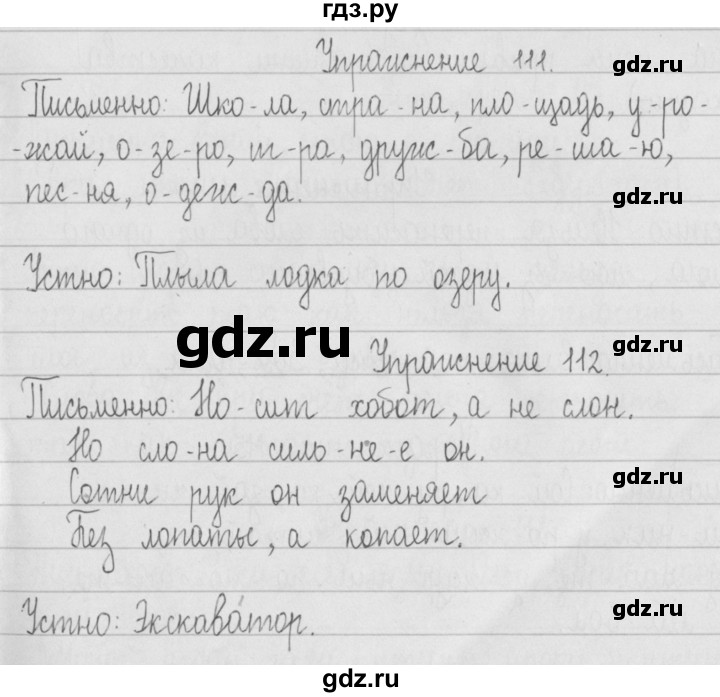 гдз.ру
Упражнение 111.
gdz.ru
Письменно: Шко-ла, стра-на, пло-щадь, у-ро-
-жай, о-зе-ро, иг-ра, друж-ба, ре-ша-ю,
gdz.ru
пес-ня, о-деж-да.
gdz.ru
Устно: Плыла лодка по озеру.
gdz.ru
gdz.ru
Упражнение 112.
gdz.ru
Письменно: Но-сит хобот, а не слон.
Но сло-на силь-не-е он.
gdz.ru
Сотни рук он заменяет
Без лопаты, а копает.
gdz.ru
gdz.ru
Устно: Экскава́тор.
gdz.ru